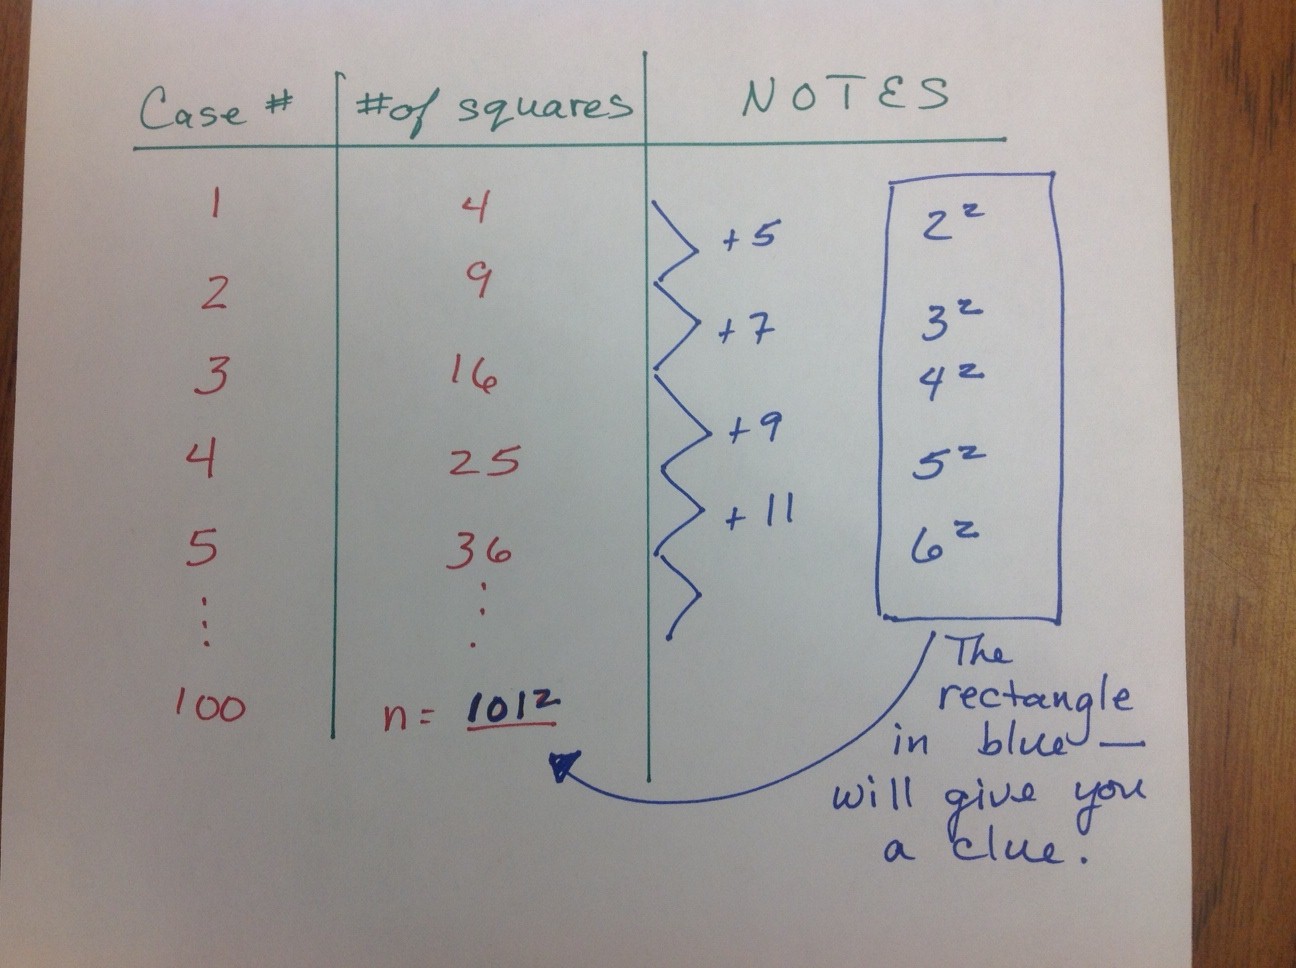 Case # #of squares NOTES
1 4 2²
+5
2 9 3²
+7
3 16 4²
+9
4 25 5²
+11
5 36 6²
⋮ ⋮
100 n = 101²
The
rectangle
in blue —
will give you
a clue.